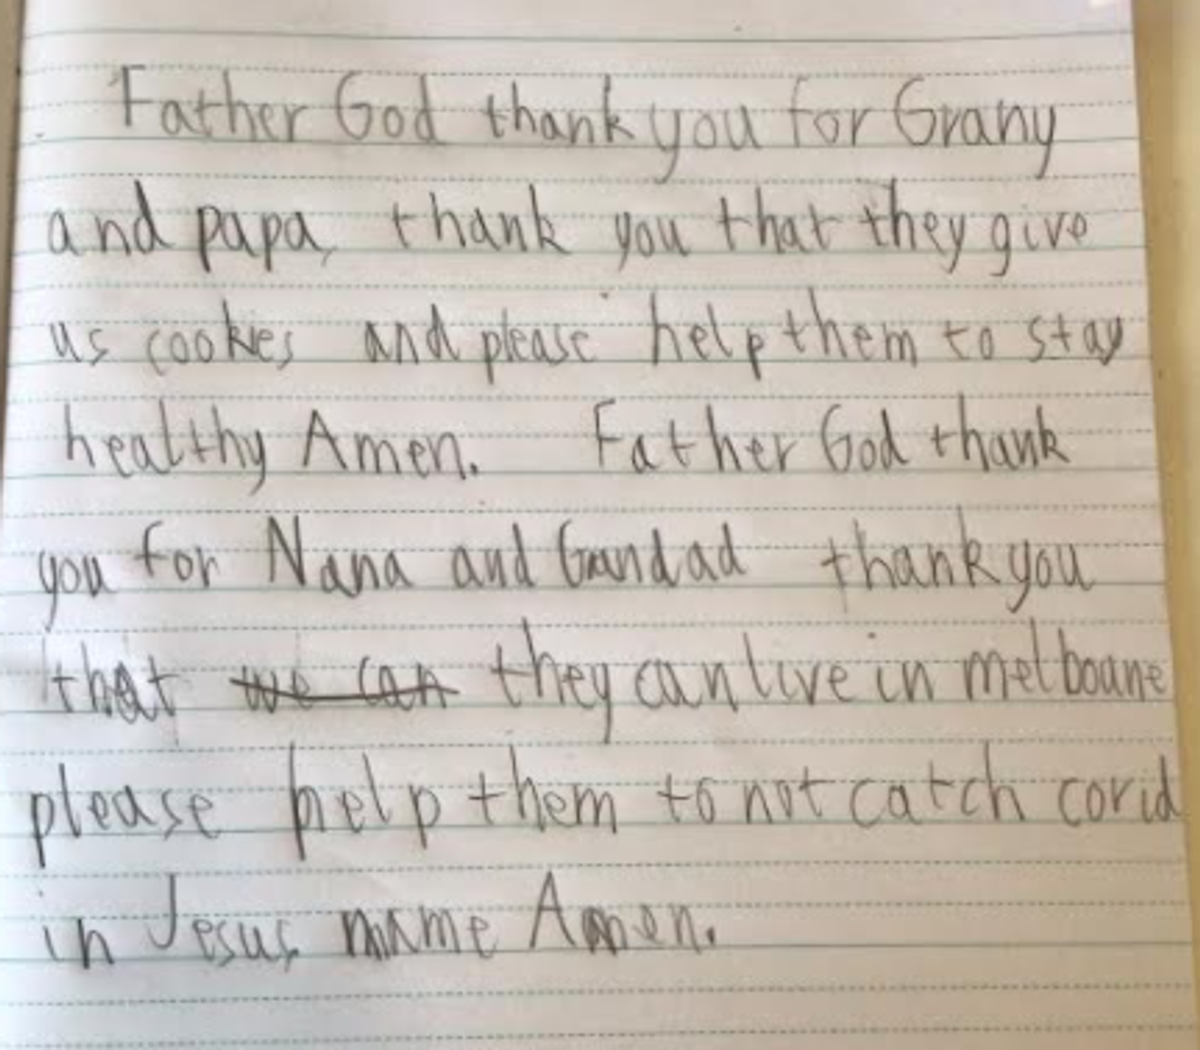 Father God thank you for Grany
and papa, thank you that they give
us cookies and please help them to stay
healthy Amen. Father God thank
you for Nana and Grandad thank you
that we can they can live in melboune
please help them to not catch covid
in Jesus name Amen.